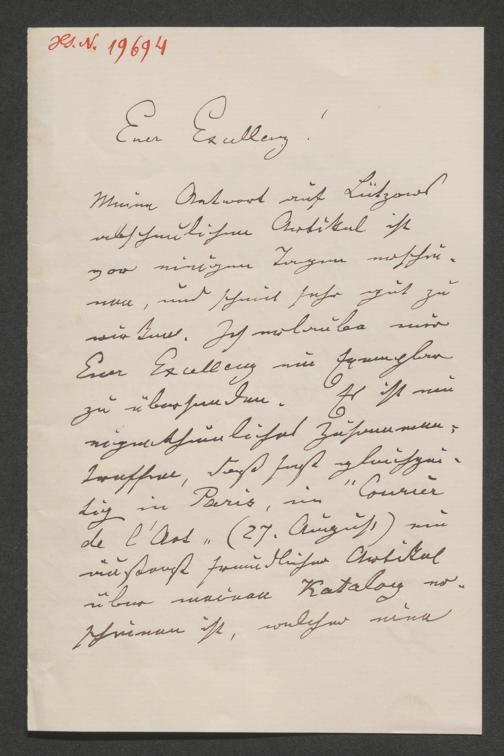 Hs. N. 19694
Euer Excellenz!
Meine Antwort auf Lützows
abscheulichen Artikel ist
vor einigen Tagen erschie-
nen, und scheint sehr gut zu
wirken. Ich erlaube mir
Euer Excellenz ein Exemplar
zu übersenden. Es ist ein
eigenthümliches Zusammen-
treffen, daß fast gleichzei-
tig in Paris, im "Courier
de l'Art" (27. August) ein
äußerst freundlicher Artikel
über meinen Katalog er-
schienen ist, welcher eine